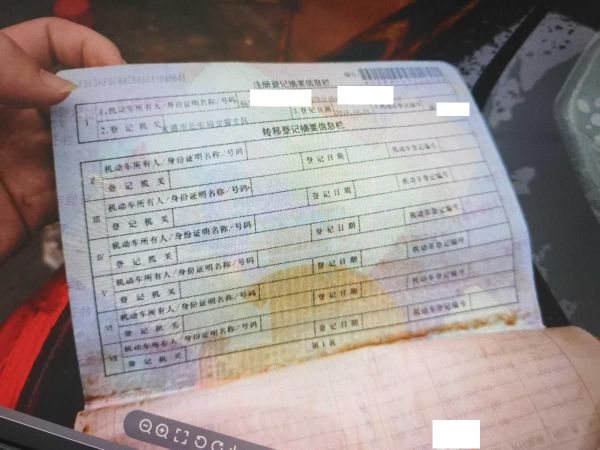 注册登记摘要信息栏
1 1.机动车所有人/身份证明名称/号码
2.登记机关 3.登记日期
转移登记摘要信息栏
II 机动车所有人/身份证明名称/号码
登记机关 登记日期 机动车登记编号
III 机动车所有人/身份证明名称/号码
登记机关 登记日期 机动车登记编号
IV 机动车所有人/身份证明名称/号码
登记机关 登记日期 机动车登记编号
V 机动车所有人/身份证明名称/号码
登记机关 登记日期 机动车登记编号
VI 机动车所有人/身份证明名称/号码
登记机关 登记日期 机动车登记编号
VII 机动车所有人/身份证明名称/号码
登记机关 登记日期 机动车登记编号
第1页